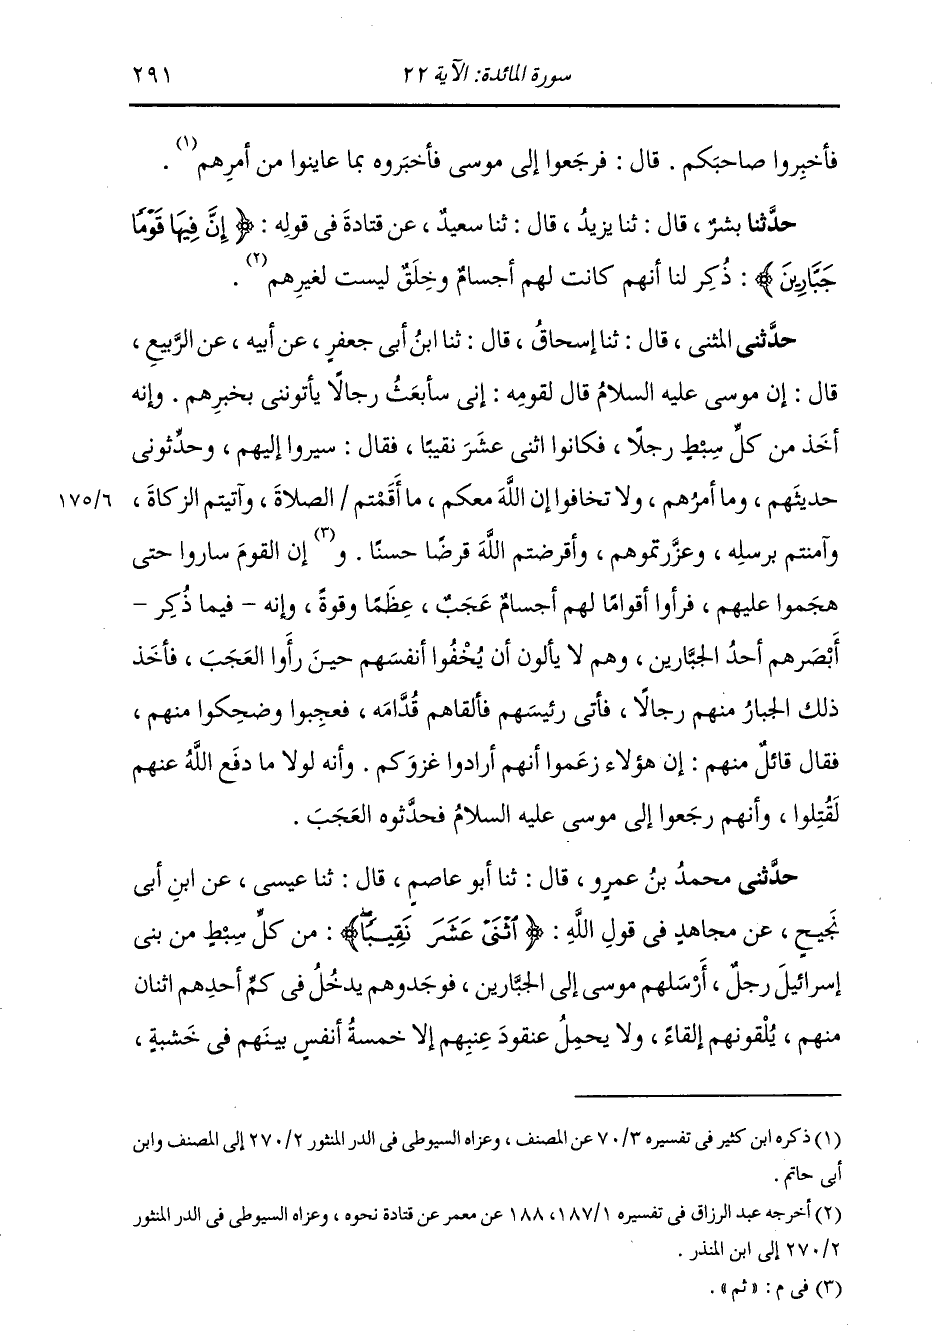 سورة المائدة: الآية ٢٢ ٢٩١
فأخبِروا صاحبَكم . قال : فرجَعوا إلى موسى فأخبَروه بما عاينوا من أمرِهم(١) .
حدَّثنا بشرٌ ، قال : ثنا يزيدُ ، قال : ثنا سعيدٌ ، عن قتادةَ فى قولِه : ﴿ إِنَّ فِيهَا قَوْمًا
جَبَّارِينَ ﴾ : ذُكِر لنا أنهم كانت لهم أجسامٌ وخِلَقٌ ليست لغيرِهم(٢) .
حدَّثنى المثنى ، قال : ثنا إسحاقُ ، قال : ثنا ابنُ أبى جعفرٍ ، عن أبيه ، عن الرَّبيعِ ،
قال : إن موسى عليه السلامُ قال لقومِه : إنى سأبعَثُ رجالًا يأتوننى بخبرِهم . وإنه
أخَذ من كلِّ سِبْطٍ رجلًا ، فكانوا اثنى عشَرَ نقيبًا ، فقال : سيروا إليهم ، وحدِّثونى
حديثَهم ، وما أمرُهم ، ولا تخافوا إن اللَّهَ معكم ، ما أَقَمْتم / الصلاةَ ، وآتيتم الزكاةَ ، ١٧٥/٦
وآمنتم برسلِه ، وعزَّرتموهم ، وأقرضتم اللَّهَ قرضًا حسنًا . و(٣) إن القومَ ساروا حتى
هجَموا عليهم ، فرأوا أقوامًا لهم أجسامٌ عَجَبٌ ، عِظَمًا وقوةً ، وإنه - فيما ذُكِر -
أَبْصَرهم أحدُ الجبَّارين ، وهم لا يألون أن يُخْفُوا أنفسَهم حينَ رأَوا العَجَبَ ، فأخَذ
ذلك الجبارُ منهم رجالًا ، فأتى رئيسَهم فألقاهم قُدَّامَه ، فعجِبوا وضحِكوا منهم ،
فقال قائلٌ منهم : إن هؤلاء زعَموا أنهم أرادوا غزوَكم . وأنه لولا ما دفَع اللَّهُ عنهم
لَقُتِلوا ، وأنهم رجَعوا إلى موسى عليه السلامُ فحدَّثوه العَجَبَ .
حدَّثنى محمدُ بنُ عمرٍو ، قال : ثنا أبو عاصمٍ ، قال : ثنا عيسى ، عن ابنِ أبى
نَجيحٍ ، عن مجاهدٍ فى قولِ اللَّهِ : ﴿ ٱثْنَىْ عَشَرَ نَقِيبًا ﴾ : من كلِّ سِبْطٍ من بنى
إسرائيلَ رجلٌ ، أَرْسَلهم موسى إلى الجبَّارين ، فوجَدوهم يدخُلُ فى كمِّ أحدِهم اثنان
منهم ، يُلْقونهم إلقاءً ، ولا يحمِلُ عنقودَ عِنبِهم إلا خمسةُ أنفسٍ بينَهم فى خَشبةٍ ،
(١) ذكره ابن كثير فى تفسيره ٧٠/٣ عن المصنف ، وعزاه السيوطى فى الدر المنثور ٢٧٠/٢ إلى المصنف وابن
أبى حاتم .
(٢) أخرجه عبد الرزاق فى تفسيره ١٨٧/١، ١٨٨ عن معمر عن قتادة نحوه ، وعزاه السيوطى فى الدر المنثور
٢٧٠/٢ إلى ابن المنذر .
(٣) فى م : « ثم » .